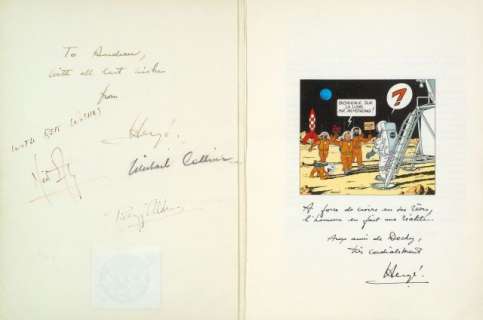 To Andrew,
with all best wishes
from
WITH BEST WISHES
Hergé!
Michael Collins
Buzz Aldrin
BIENVENUE SUR
LA LUNE,
MR ARMSTRONG!
?
A force de croire en ses rêves,
l'homme en fait une réalité.
Avec
de
très cordialement
Hergé!